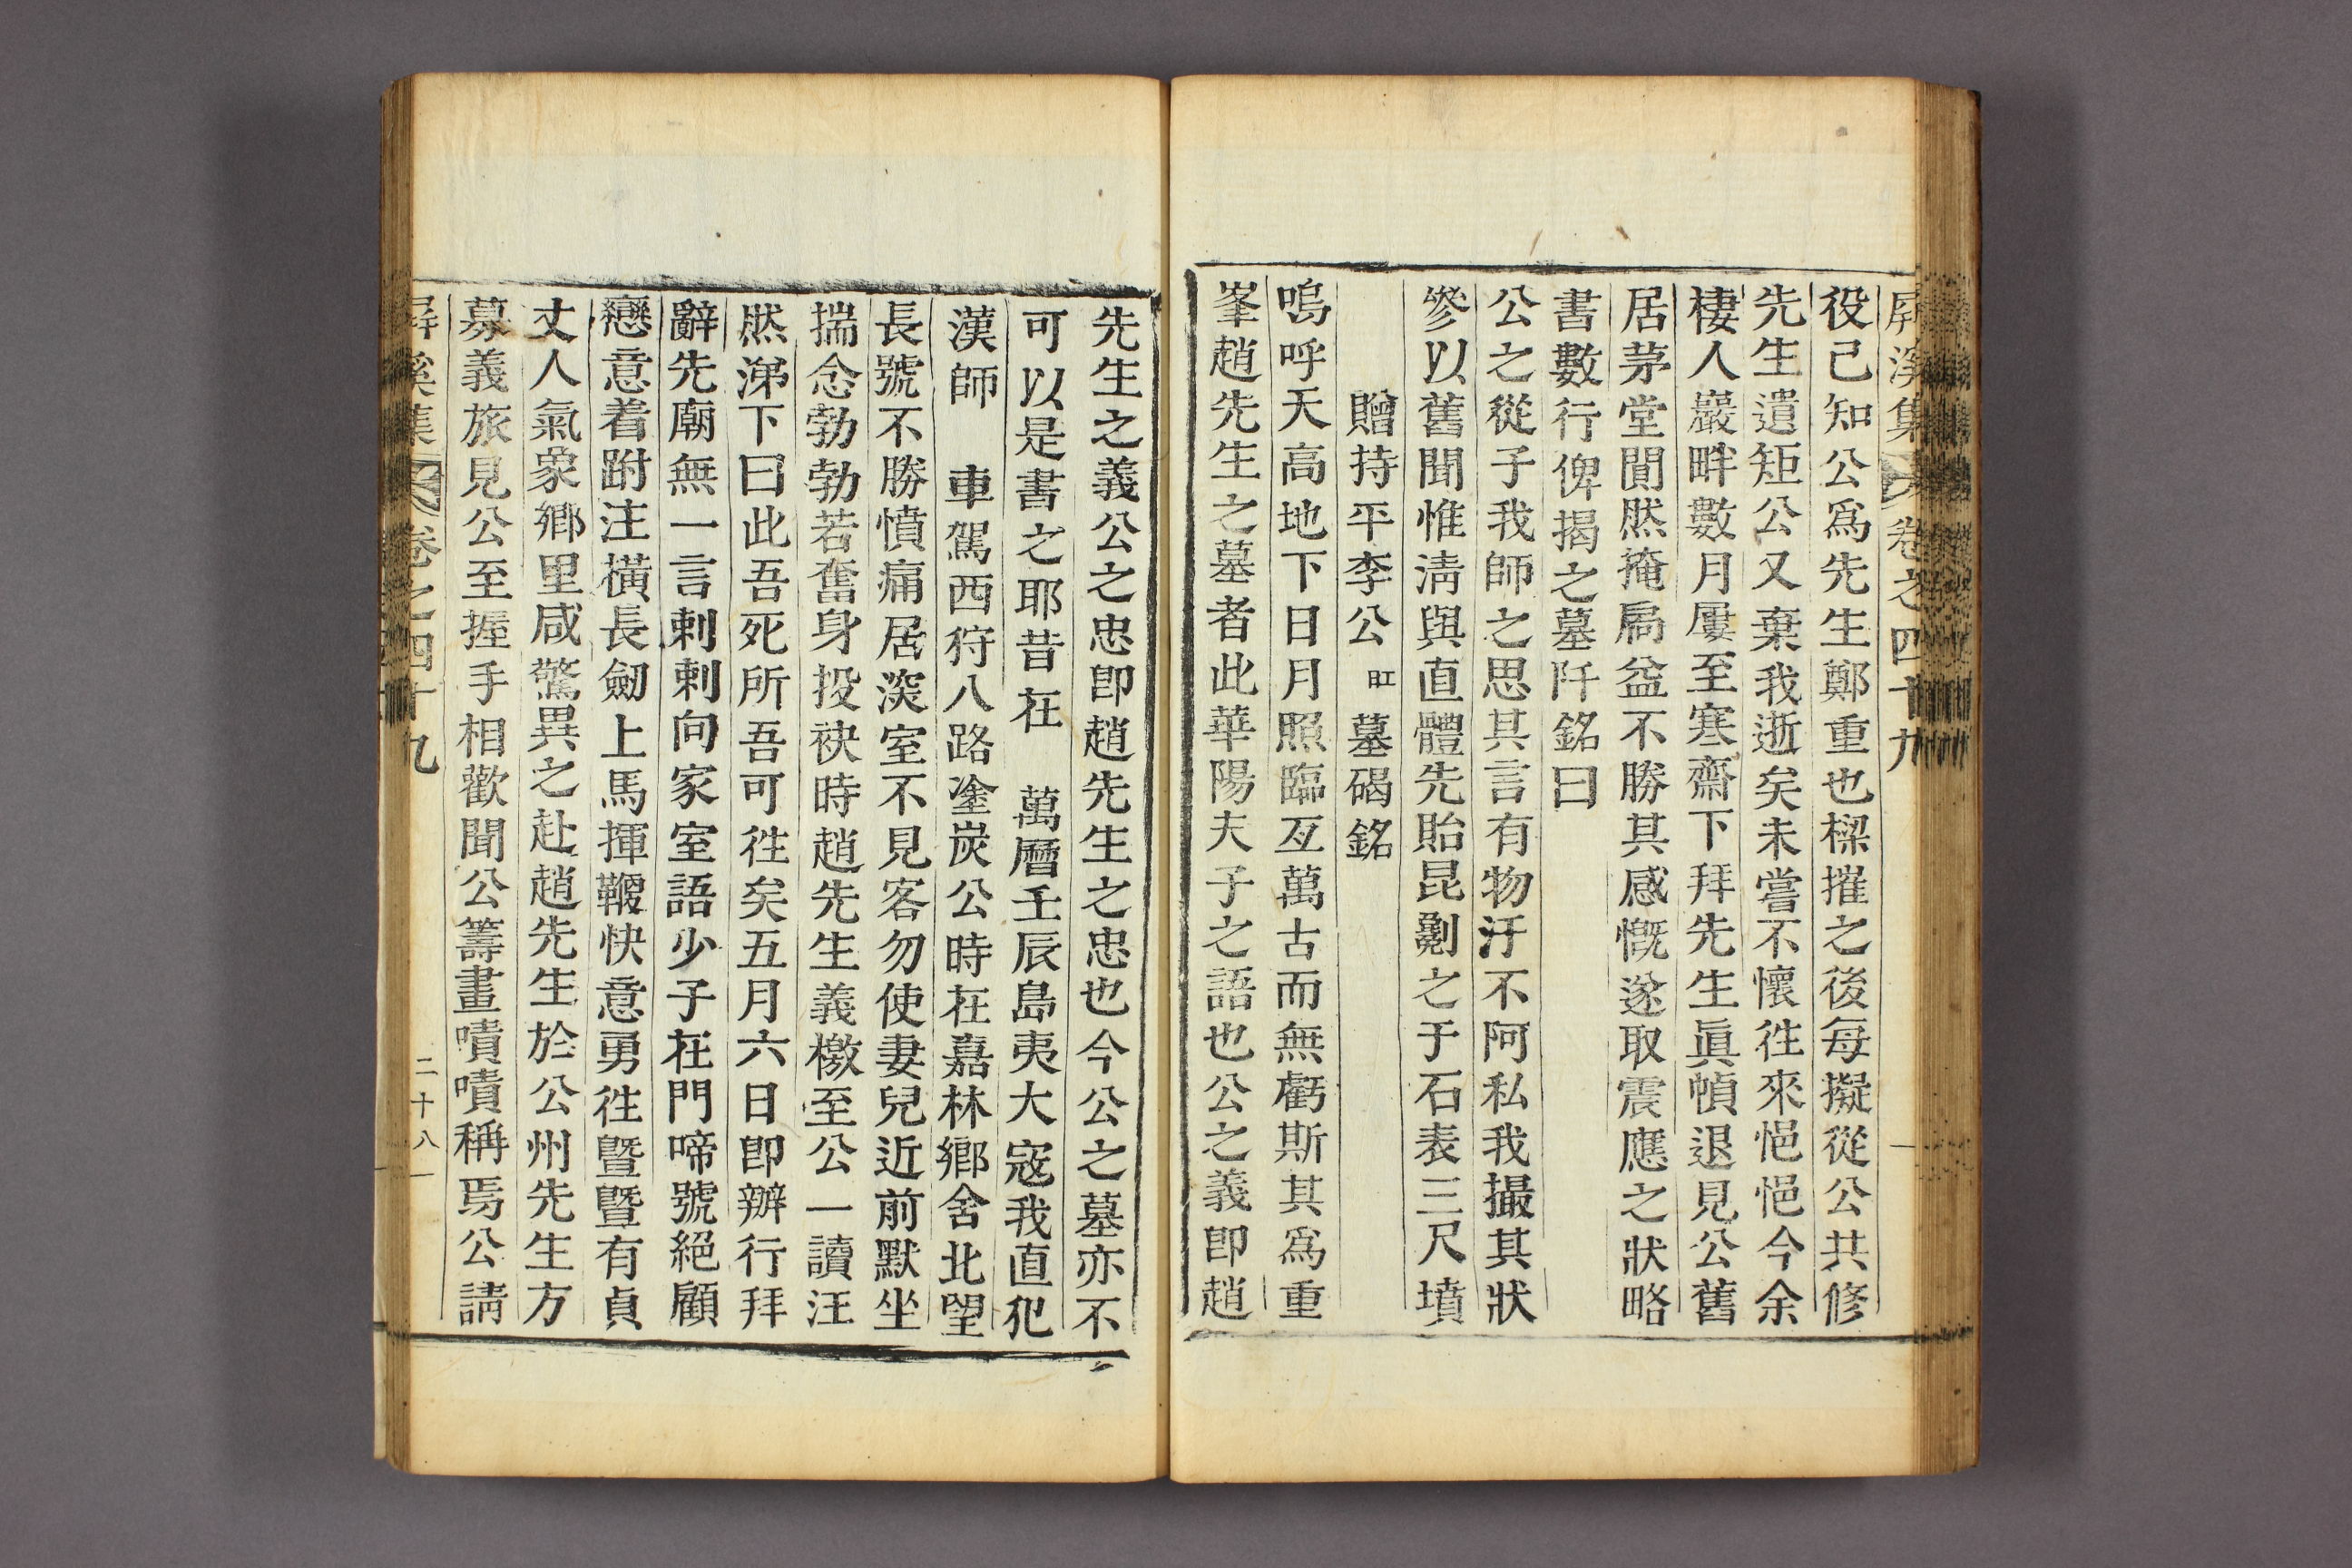 屛溪集 卷之四十九
役己知公爲先生鄭重也樑摧之後每擬從公共修
先生遺矩公又棄我逝矣未嘗不懷徃來悒悒今余
棲人巖畔數月屢至寒齋下拜先生眞幀退見公舊
居茅堂閴然掩扃益不勝其感慨遂取震應之狀略
書數行俾揭之墓阡銘曰
公之從子我師之思其言有物汙不阿私我撮其狀
參以舊聞惟淸與直體先貽昆劖之于石表三尺墳
贈持平李公 旺 墓碣銘
嗚呼天高地下日月照臨亙萬古而無虧斯其爲重
峯趙先生之墓者此華陽夫子之語也公之義卽趙
先生之義公之忠卽趙先生之忠也今公之墓亦不
可以是書之耶昔在 萬曆壬辰島夷大寇我直犯
漢師 車駕西狩八路塗炭公時在嘉林鄕舍北望
長號不勝憤痛居深室不見客勿使妻兒近前默坐
揣念勃勃若奮身投袂時趙先生義檄至公一讀汪
然涕下曰此吾死所吾可徃矣五月六日卽辦行拜
辭先廟無一言剌剌向家室語少子在門啼號絕顧
戀意着跗注橫長劒上馬揮鞭快意勇徃曁曁有貞
丈人氣象鄕里咸驚異之赴趙先生於公州先生方
募義旅見公至握手相歡聞公籌畫嘖嘖稱焉公請
屛溪集 卷之四十九 二十八